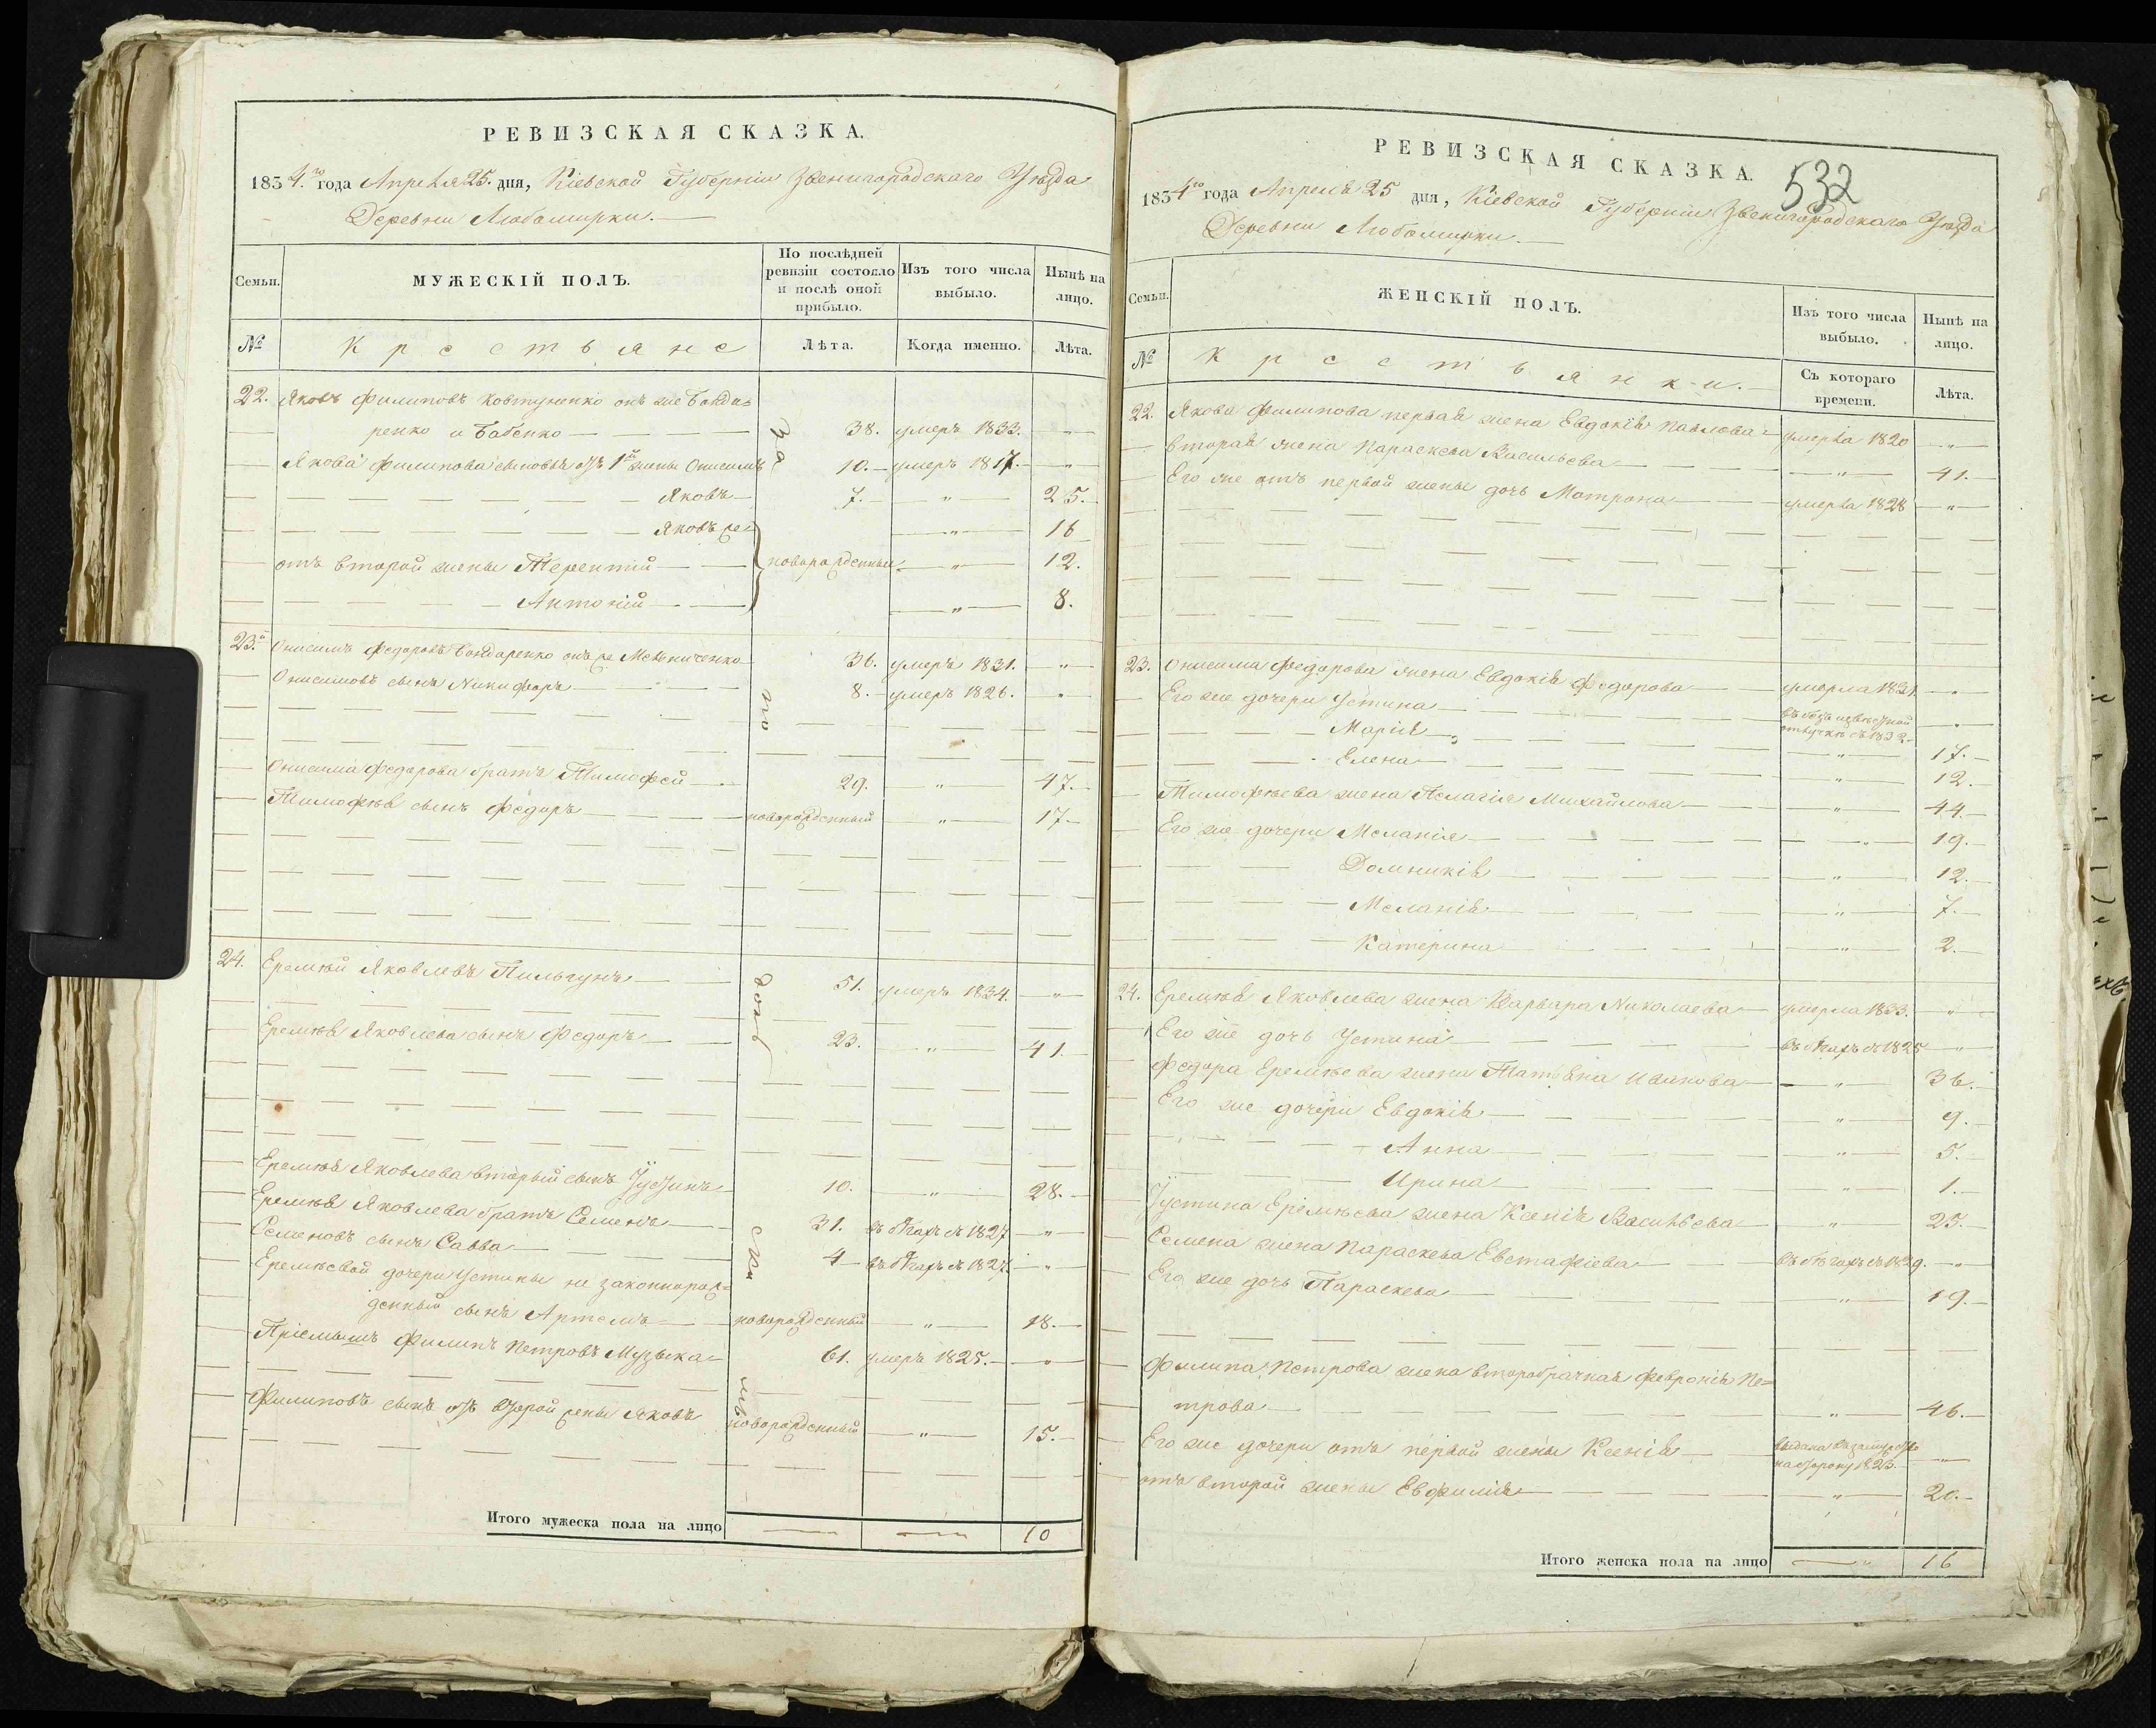 РЕВИЗСКАЯ СКАЗКА.
1834.го года Апреля 25. дня, Кіевской Губерніи Звенигородскаго Уѣзда
Деревни Любомирки.
Семьи.
МУЖЕСКІЙ ПОЛЪ.
По послѣдней ревизіи состояло и послѣ оной прибыло.
Изъ того числа выбыло.
Нынѣ на лицо.
№
Крестьяне
Лѣта.
Когда именно.
Лѣта.
22. Яковъ Филиповъ Ковтуненко онъ же Бонда=
ренко и Бабенко 38. умеръ 1833. "
Якова Филипова сыновья отъ 1й жены Онисимъ 10. умеръ 1817. "
Яковъ 7. " 25.
Яковъ же " 16
отъ второй жены Терентій новорожденныи " 12.
Антоній " 8.
23. Онисимъ Федоровъ Бондаренко онъ же Мельниченко 36. умеръ 1831. "
Онисимовъ сынъ Никифоръ 8. умеръ 1826. "
Онисима Федорова братъ Тимофей 29. " 47.
Тимофѣя сынъ Федоръ новорожденный " 17
24. Еремѣй Яковлевъ Пильгунъ 51. умеръ 1834. "
Еремѣя Яковлева сынъ Федоръ 23. " 41.
Еремѣя Яковлева вторый сынъ Іустинъ 10. " 28.
Еремѣя Яковлева братъ Семенъ 31. въ бѣгахъ съ 1827 "
Семеновъ сынъ Савва 4 въ бѣгахъ съ 1827. "
Еремѣевой дочери Устины не законнорож=
денный сынъ Артемъ новорожденный " 18.
Пріемышъ Филипъ Петровъ Музыка 61. умеръ 1825. "
Филиповъ сынъ отъ второй жены Яковъ новорожденный " 15.
Итого мужеска пола на лицо 10
РЕВИЗСКАЯ СКАЗКА.
532
1834го года Апреля 25 дня, Кіевской Губерніи Звенигородскаго Уѣзда
Деревни Любомирки.
Семьи.
ЖЕНСКІЙ ПОЛЪ.
Изъ того числа выбыло.
Нынѣ на лицо.
№
Крестьянки.
Съ котораго времени.
Лѣта.
22. Якова Филипова первая жена Евдокія Павлова умерла 1820 "
вторая жена Параскева Васильева " 41.
Его же отъ первой жены дочь Мотрона умерла 1828 "
23. Онисима Федорова жена Евдокія Федорова умерла 1831. "
Его же дочери Устина въ безъизвѣстной отлучкѣ съ 1832 "
Марія " 17.
Елена " 12.
Тимофѣева жена Пелагія Михайлова " 44.
Его же дочери Меланія " 19.
Домникія " 12.
Меланія " 7.
Катерина " 2.
24. Еремѣя Яковлева жена Варвара Николаева умерла 1833. "
Его же дочь Устина въ бѣгахъ съ 1825 "
Федора Еремѣева жена Татьяна Иванова " 36.
Его же дочери Евдокія " 9.
Анна " 5.
Ирина " 1.
Іустина Еремѣева жена Ксенія Васильева " 25.
Семена жена Параскева Евстафіева въ бѣгахъ съ 1829. "
Его же дочь Параскева " 19.
Филипа Петрова жена второбрачная Февронія Пе=
трова " 46.
Его же дочери отъ первой жены Ксенія выдана въ замужество на сторону 1823. "
отъ второй жены Евфимія " 20.
Итого женска пола на лицо " 16